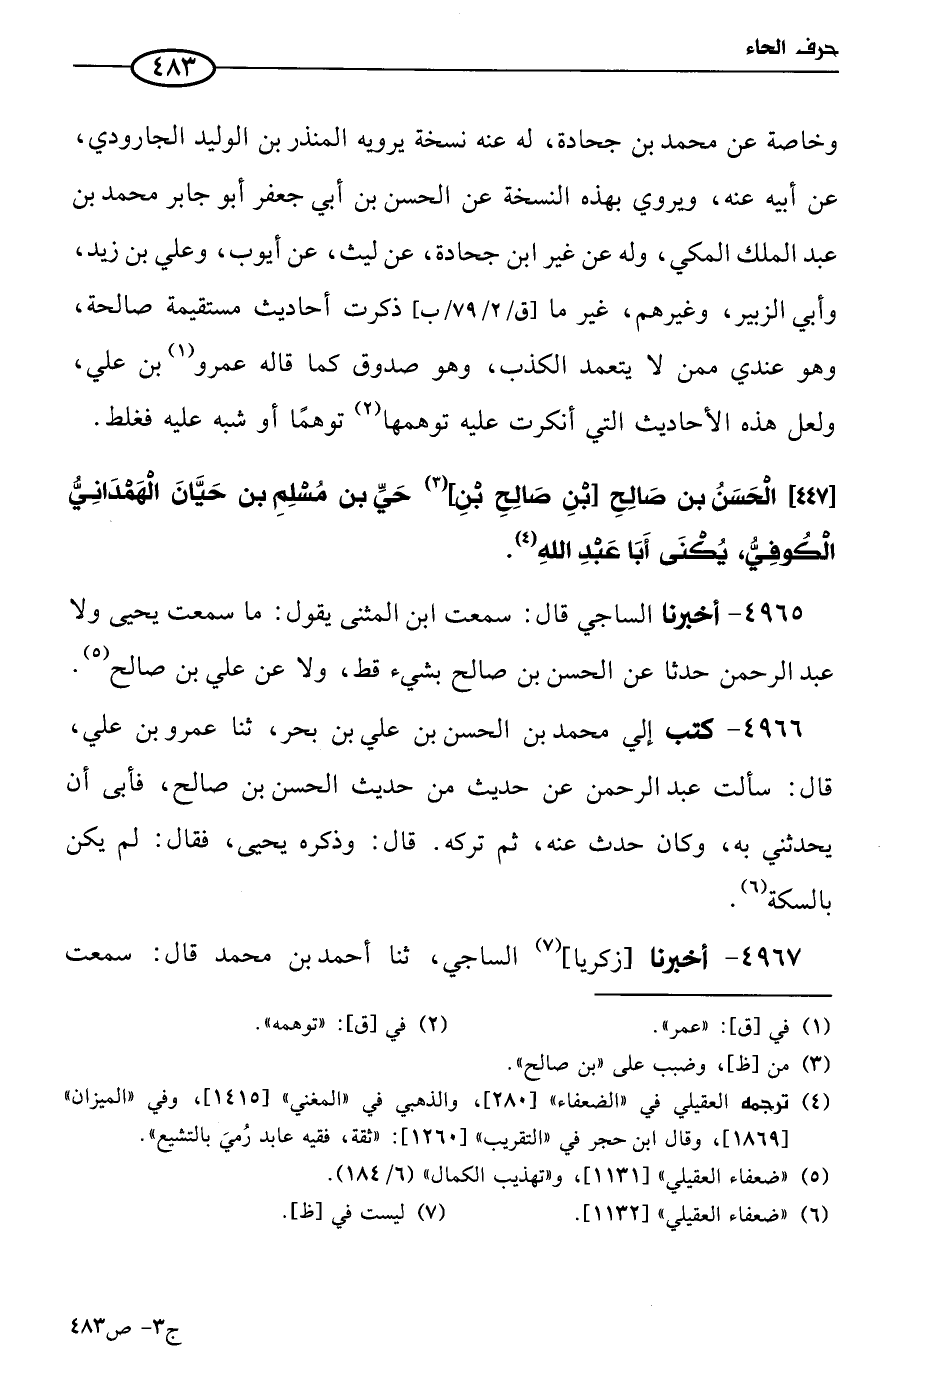 حرف الحاء
٤٨٣
وخاصة عن محمد بن جحادة، له عنه نسخة يرويه المنذر بن الوليد الجارودي،
عن أبيه عنه، ويروي بهذه النسخة عن الحسن بن أبي جعفر أبو جابر محمد بن
عبد الملك المكي، وله عن غير ابن جحادة، عن ليث، عن أيوب، وعلي بن زيد،
وأبي الزبير، وغيرهم، غير ما [ق/٧٩/٢/ب] ذكرت أحاديث مستقيمة صالحة،
وهو عندي ممن لا يتعمد الكذب، وهو صدوق كما قاله عمرو(١) بن علي،
ولعل هذه الأحاديث التي أنكرت عليه توهمها(٢) توهمًا أو شبه عليه فغلط.
[٤٤٧] الْحَسَنُ بن صَالِحِ [بْنِ صَالِحِ بْنِ](٣) حَيِّ بن مُسْلِمِ بن حَيَّانَ الْهَمْدَانِيُّ
الْكُوفِيُّ، يُكْنَى أَبَا عَبْدِ اللهِ(٤).
٤٩٦٥- أخبرنا الساجي قال: سمعت ابن المثنى يقول: ما سمعت يحيى ولا
عبد الرحمن حدثا عن الحسن بن صالح بشيء قط، ولا عن علي بن صالح(٥).
٤٩٦٦- كتب إلي محمد بن الحسن بن علي بن بحر، ثنا عمرو بن علي،
قال: سألت عبد الرحمن عن حديث من حديث الحسن بن صالح، فأبى أن
يحدثني به، وكان حدث عنه، ثم تركه. قال: وذكره يحيى، فقال: لم يكن
بالسكة(٦).
٤٩٦٧- أخبرنا [زكريا](٧) الساجي، ثنا أحمد بن محمد قال: سمعت
(١) في [ق]: «عمر». (٢) في [ق]: «توهمه».
(٣) من [ظ]، وضبب على «بن صالح».
(٤) ترجمه العقيلي في «الضعفاء» [٢٨٠]، والذهبي في «المغني» [١٤١٥]، وفي «الميزان»
[١٨٦٩]، وقال ابن حجر في «التقريب» [١٢٦٠]: «ثقة، فقيه عابد رُميَ بالتشيع».
(٥) «ضعفاء العقيلي» [١١٣١]، و«تهذيب الكمال» (٦/ ١٨٤).
(٦) «ضعفاء العقيلي» [١١٣٢]. (٧) ليست في [ظ].
ج٣- ص٤٨٣